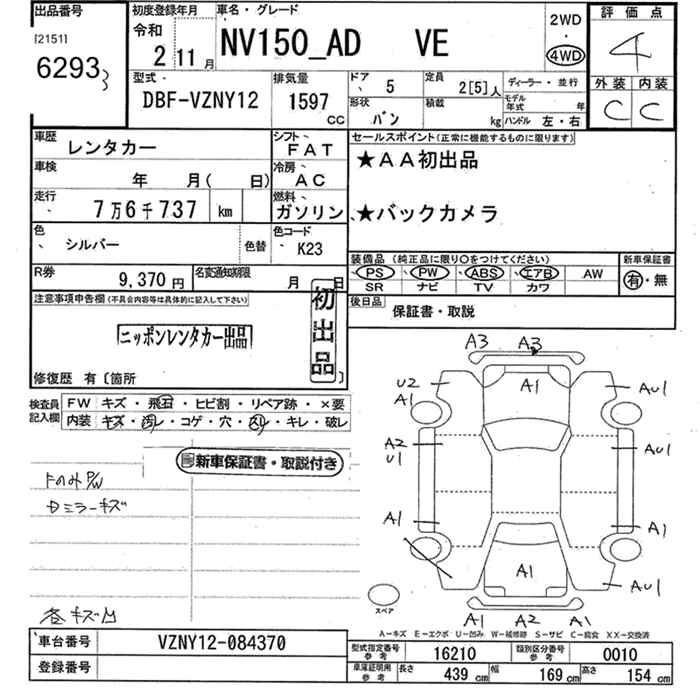 出品番号
[2151]
6293
初度登録年月
令和
2 11月
車名・グレード
NV150_AD VE
2WD
・
4WD
評価点
4
外装 内装
C C
型式
DBF-VZNY12
排気量
1597
CC
ドア 5
定員 2[5]人
ディーラー・並行
形状 バン
積載 kg
モデル年式 年
ハンドル 左・右
車歴
レンタカー
シフト
FAT
セールスポイント(正常に機能するものに限ります)
★AA初出品
★バックカメラ
車検
年 月( 日)
冷房
AC
走行
7万6千737 km
燃料
ガソリン
色
シルバー
色替
色コード
K23
装備品 (純正品に限り○をつけてください)
PS PW ABS エアB AW
SR ナビ TV カワ
新車保証書
有・無
R券
9,370円
名変通知期限
月 日
後日品
保証書・取説
注意事項申告欄(不具合内容等は具体的に記入して下さい)
ニッポンレンタカー出品
初出品
修復歴 有〔箇所 〕
検査員
記入欄
FW キズ・飛石・ヒビ割・リペア跡・×要
内装 キズ・汚レ・コゲ・穴・スレ・キレ・破レ
新車保証書・取説付き
FのみPW
Dミラーキズ
各キズ凹
A3 A3
U2
A1
A1
AU1
A2
U1
AU1
A1
A1
A1
AU1
スペア
A1 A2 A1
A-キズ E-エクボ U-凹み W-補修跡 S-サビ C-腐食 XX-交換済
車台番号
VZNY12-084370
登録番号
型式指定番号
参考
16210
類別区分番号
参考
0010
車庫証明用
参考
長さ 439 cm 幅 169 cm 高さ 154 cm